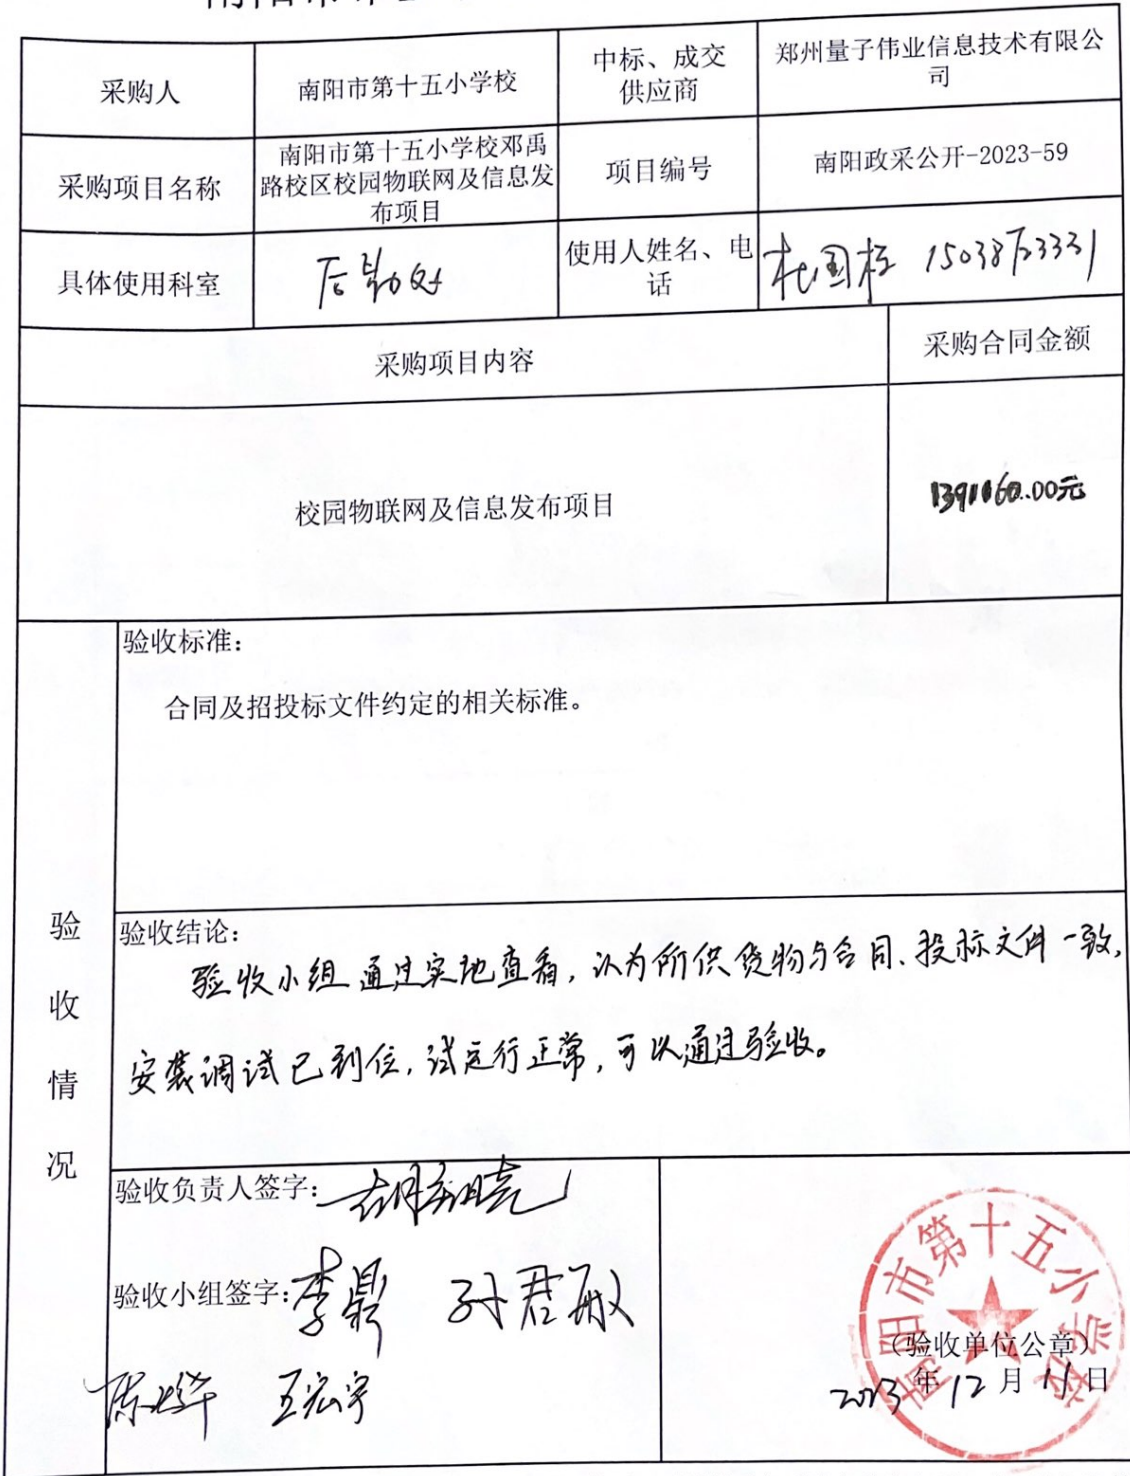 采购人
南阳市第十五小学校
中标、成交
供应商
郑州量子伟业信息技术有限公
司
采购项目名称
南阳市第十五小学校邓禹
路校区校园物联网及信息发
布项目
项目编号
南阳政采公开-2023-59
具体使用科室
后勤处
使用人姓名、电
话
采购项目内容
采购合同金额
校园物联网及信息发布项目
.00元
验收情况
验收标准：
合同及招投标文件约定的相关标准。
验收结论：
验收小组通过实地查看，认为所供货物与合同、投标文件一致，
安装调试已到位，试运行正常，可以通过验收。
验收负责人签字：
验收小组签字：李鼎 孙君敏
王宏宇
南阳市第十五小学校
（验收单位公章）
2023年12月11日